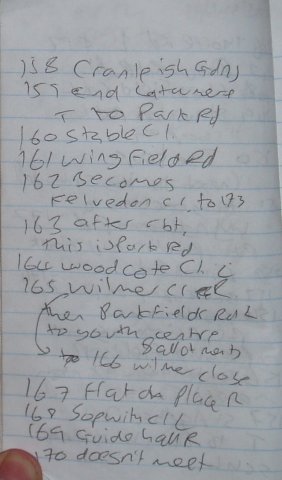 158 Cranleigh Gdns
159 end Latchmere
T to Park Rd
160 Stable Cl.
161 Wingfield Rd
162 Becomes
Kelvedon Cl. to 173
163 after rbt,
this is Park Rd
164 Woodcote Cl. L
165 Wilmer Cl R
then Barkfields Rd L
to youth centre
& allotments
166 Wilmer Close
167 Place R
168 Sopwith Cl L
169 Guide hall R
170 doesn't meet